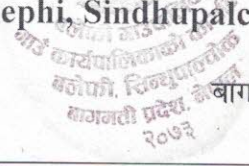 ephi, Sindhupalc
गाउँ कार्यपालिकाको
बलेफी, सिन्धुपाल्चोक
बागमती प्रदेश, नेपाल
२०७३
बाग